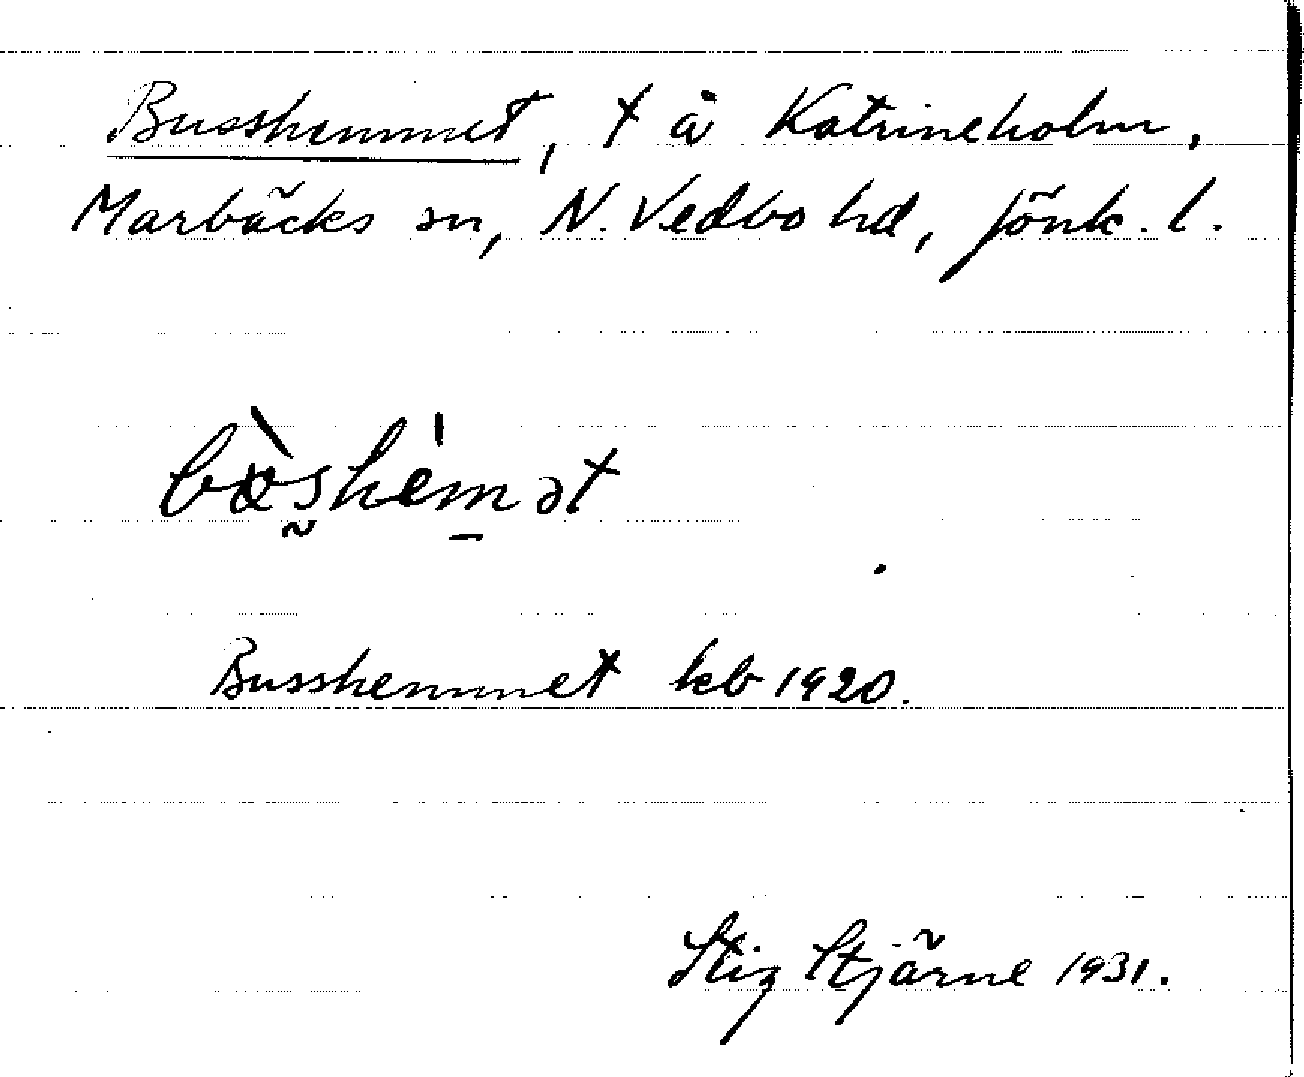 Busshemmet, t å Katrineholm,
Marbäcks sn, N. Vedbo hd, Jönk. l.
Busshemmet kb 1920.
Stig Stjärne 1931.